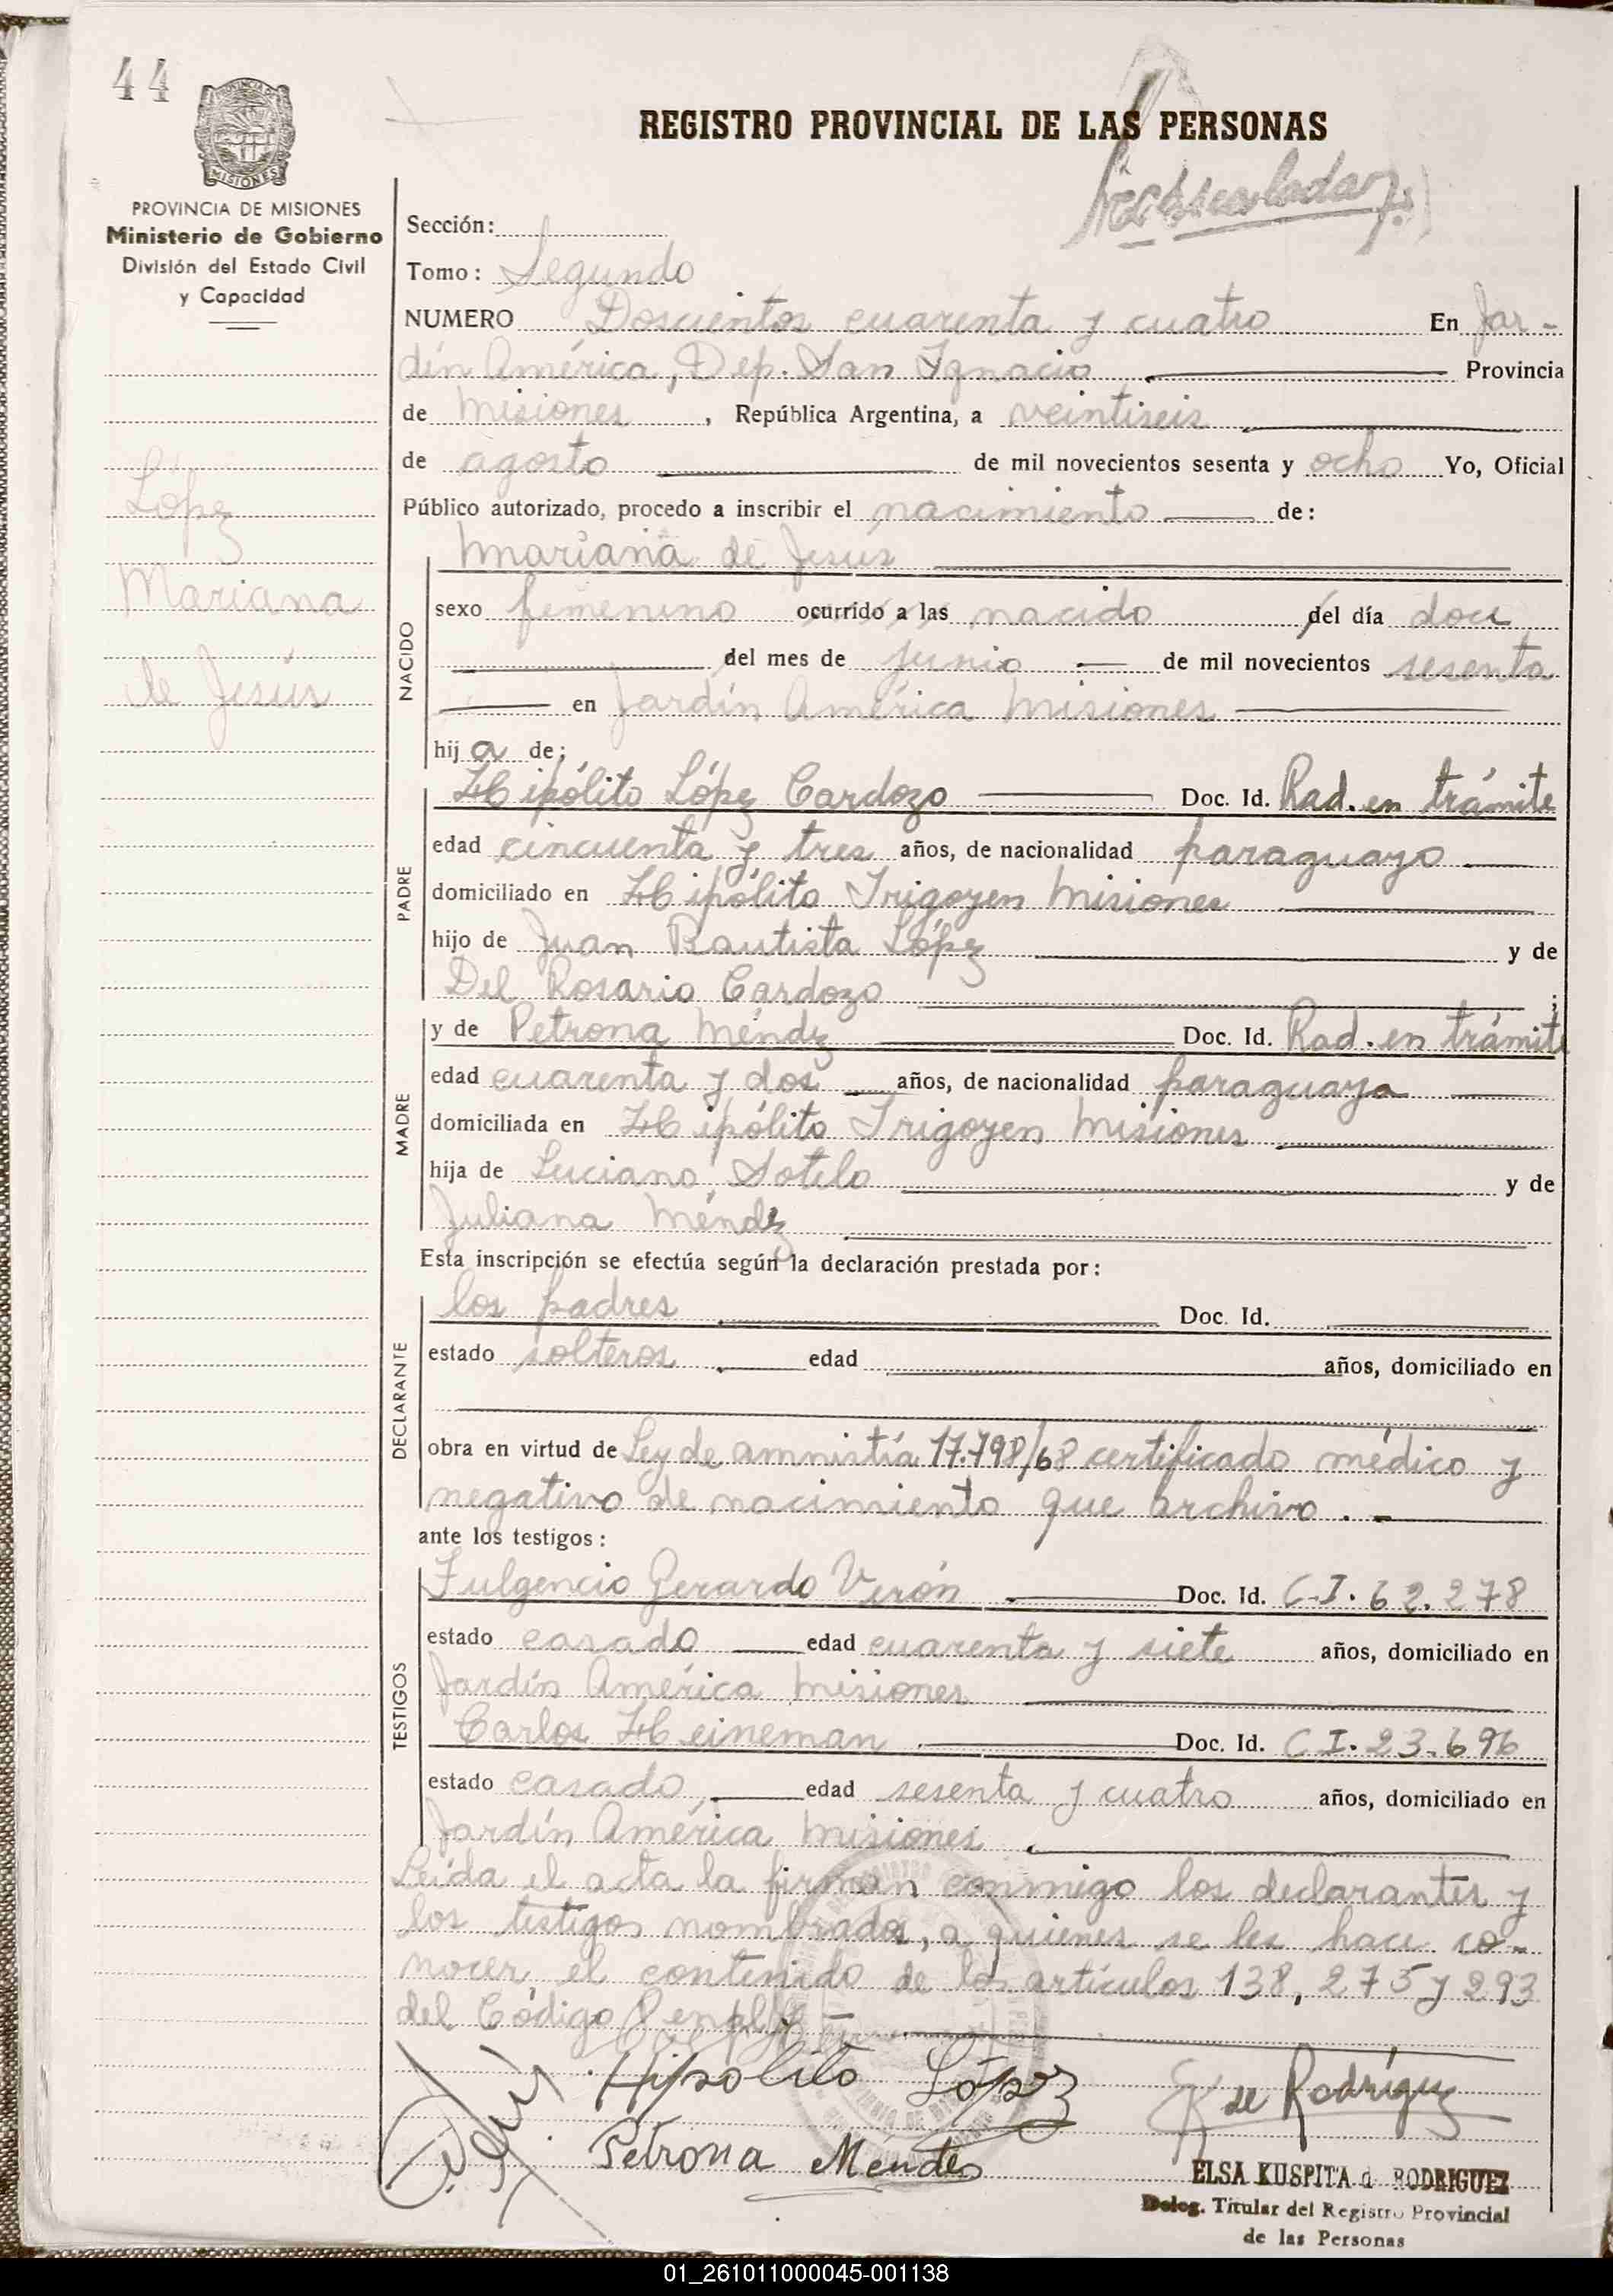 44
PROVINCIA DE MISIONES
Ministerio de Gobierno
División del Estado Civil
y Capacidad
López
Mariana
de Jesús
REGISTRO PROVINCIAL DE LAS PERSONAS
Sección:
Tomo: Segundo
NUMERO Doscientos cuarenta y cuatro En Jar-
dín América, Dep. San Ignacio Provincia
de Misiones, República Argentina, a veintiseis
de agosto de mil novecientos sesenta y ocho Yo, Oficial
Público autorizado, procedo a inscribir el nacimiento de:
Mariana de Jesús
NACIDO
sexo femenino ocurrido a las nacido del día doce
del mes de junio de mil novecientos sesenta
en Jardín América Misiones
hija de:
PADRE
Hipólito López Cardozo Doc. Id. Rad. en trámite
edad cincuenta y tres años, de nacionalidad paraguayo
domiciliado en Hipólito Irigoyen Misiones
hijo de Juan Bautista López y de
Del Rosario Cardozo ;
MADRE
y de Petrona Méndz Doc. Id. Rad. en trámite
edad cuarenta y dos años, de nacionalidad paraguaya
domiciliada en Hipólito Irigoyen Misiones
hija de Luciano Sotelo y de
Juliana Méndz
Esta inscripción se efectúa según la declaración prestada por:
DECLARANTE
los padres Doc. Id.
estado solteros edad años, domiciliado en
obra en virtud de Ley de amnistía 17.798/68 certificado médico y
negativo de nacimiento que archivo.-
ante los testigos:
TESTIGOS
Fulgencio Gerardo Verón Doc. Id. C.I. 62.278
estado casado edad cuarenta y siete años, domiciliado en
Jardín América Misiones
Carlos Heineman Doc. Id. C.I. 23.696
estado casado, edad sesenta y cuatro años, domiciliado en
Jardín América Misiones.
Leída el acta la firman conmigo los declarantes y
los testigos nombrados, a quienes se les hace co-
nocer el contenido de los artículos 138, 275 y 293
del Código Penal.-
Hipolito López
Petrona Méndes
K de Rodríguez
ELSA KUSPITA d RODRIGUEZ
Deleg. Titular del Registro Provincial
de las Personas
01_261011000045-001138